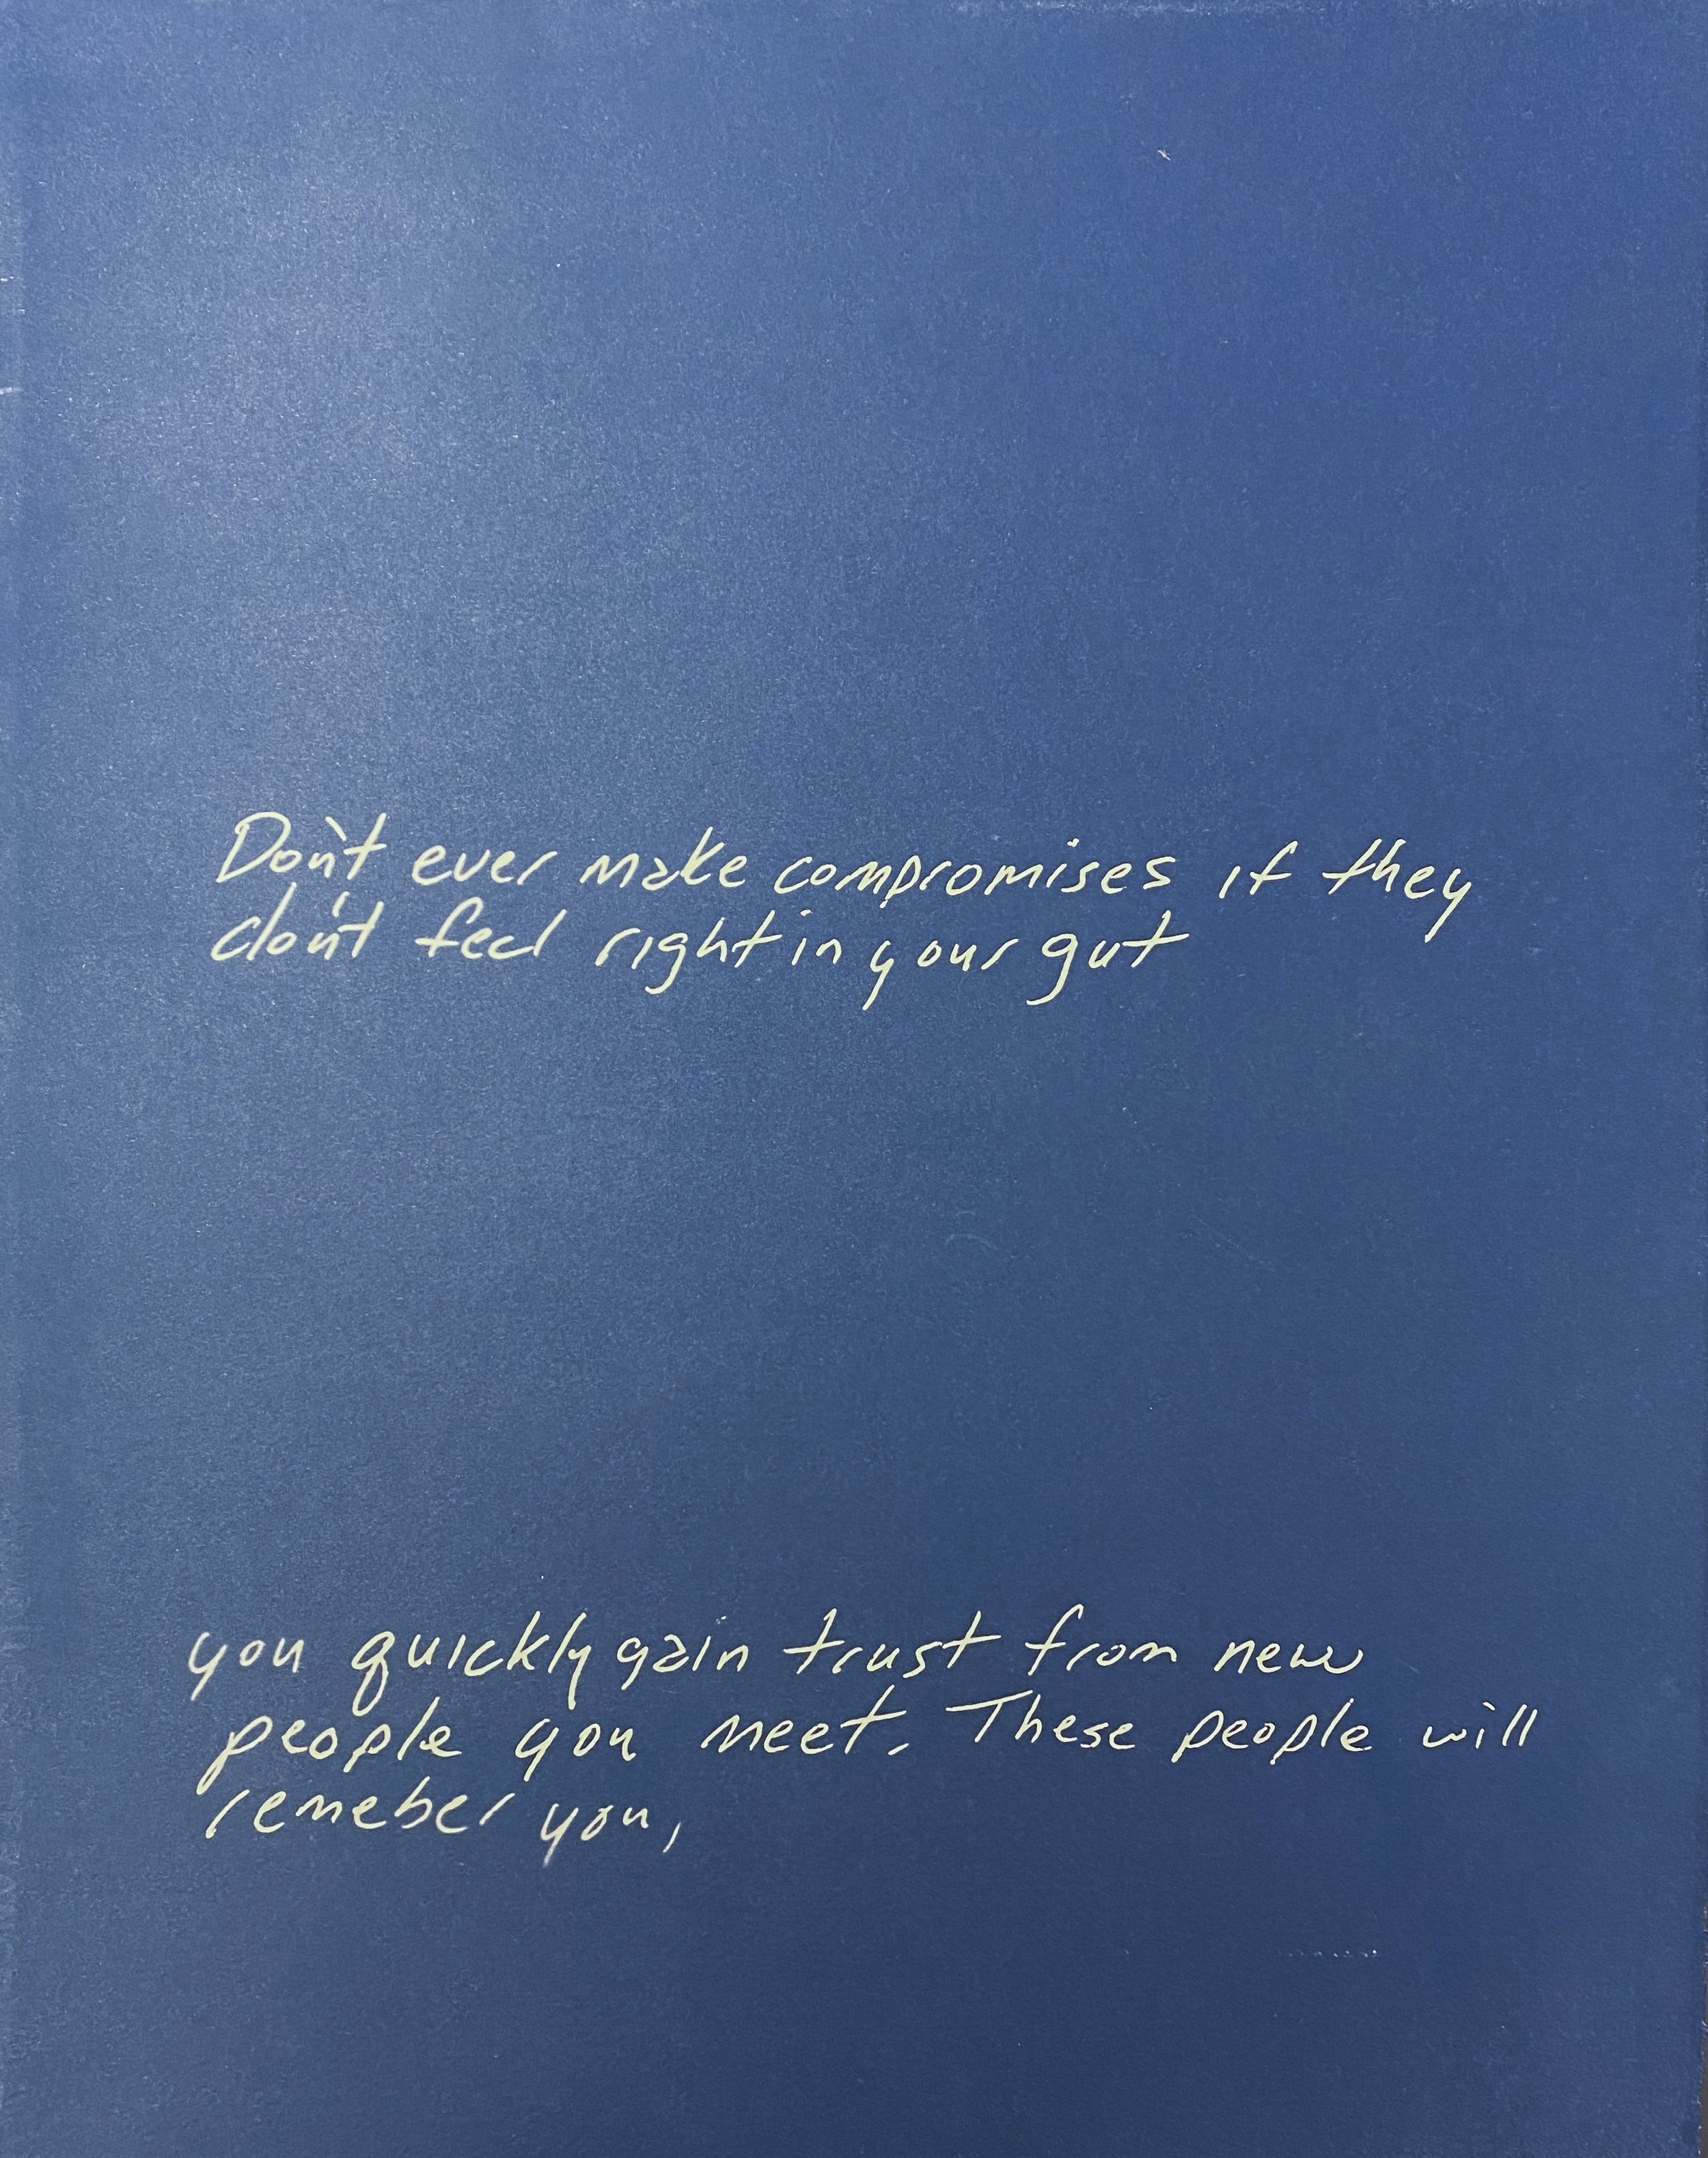 Don't ever make compromises if they
don't feel right in your gut
you quickly gain trust from new
people you meet. These people will
remeber you,